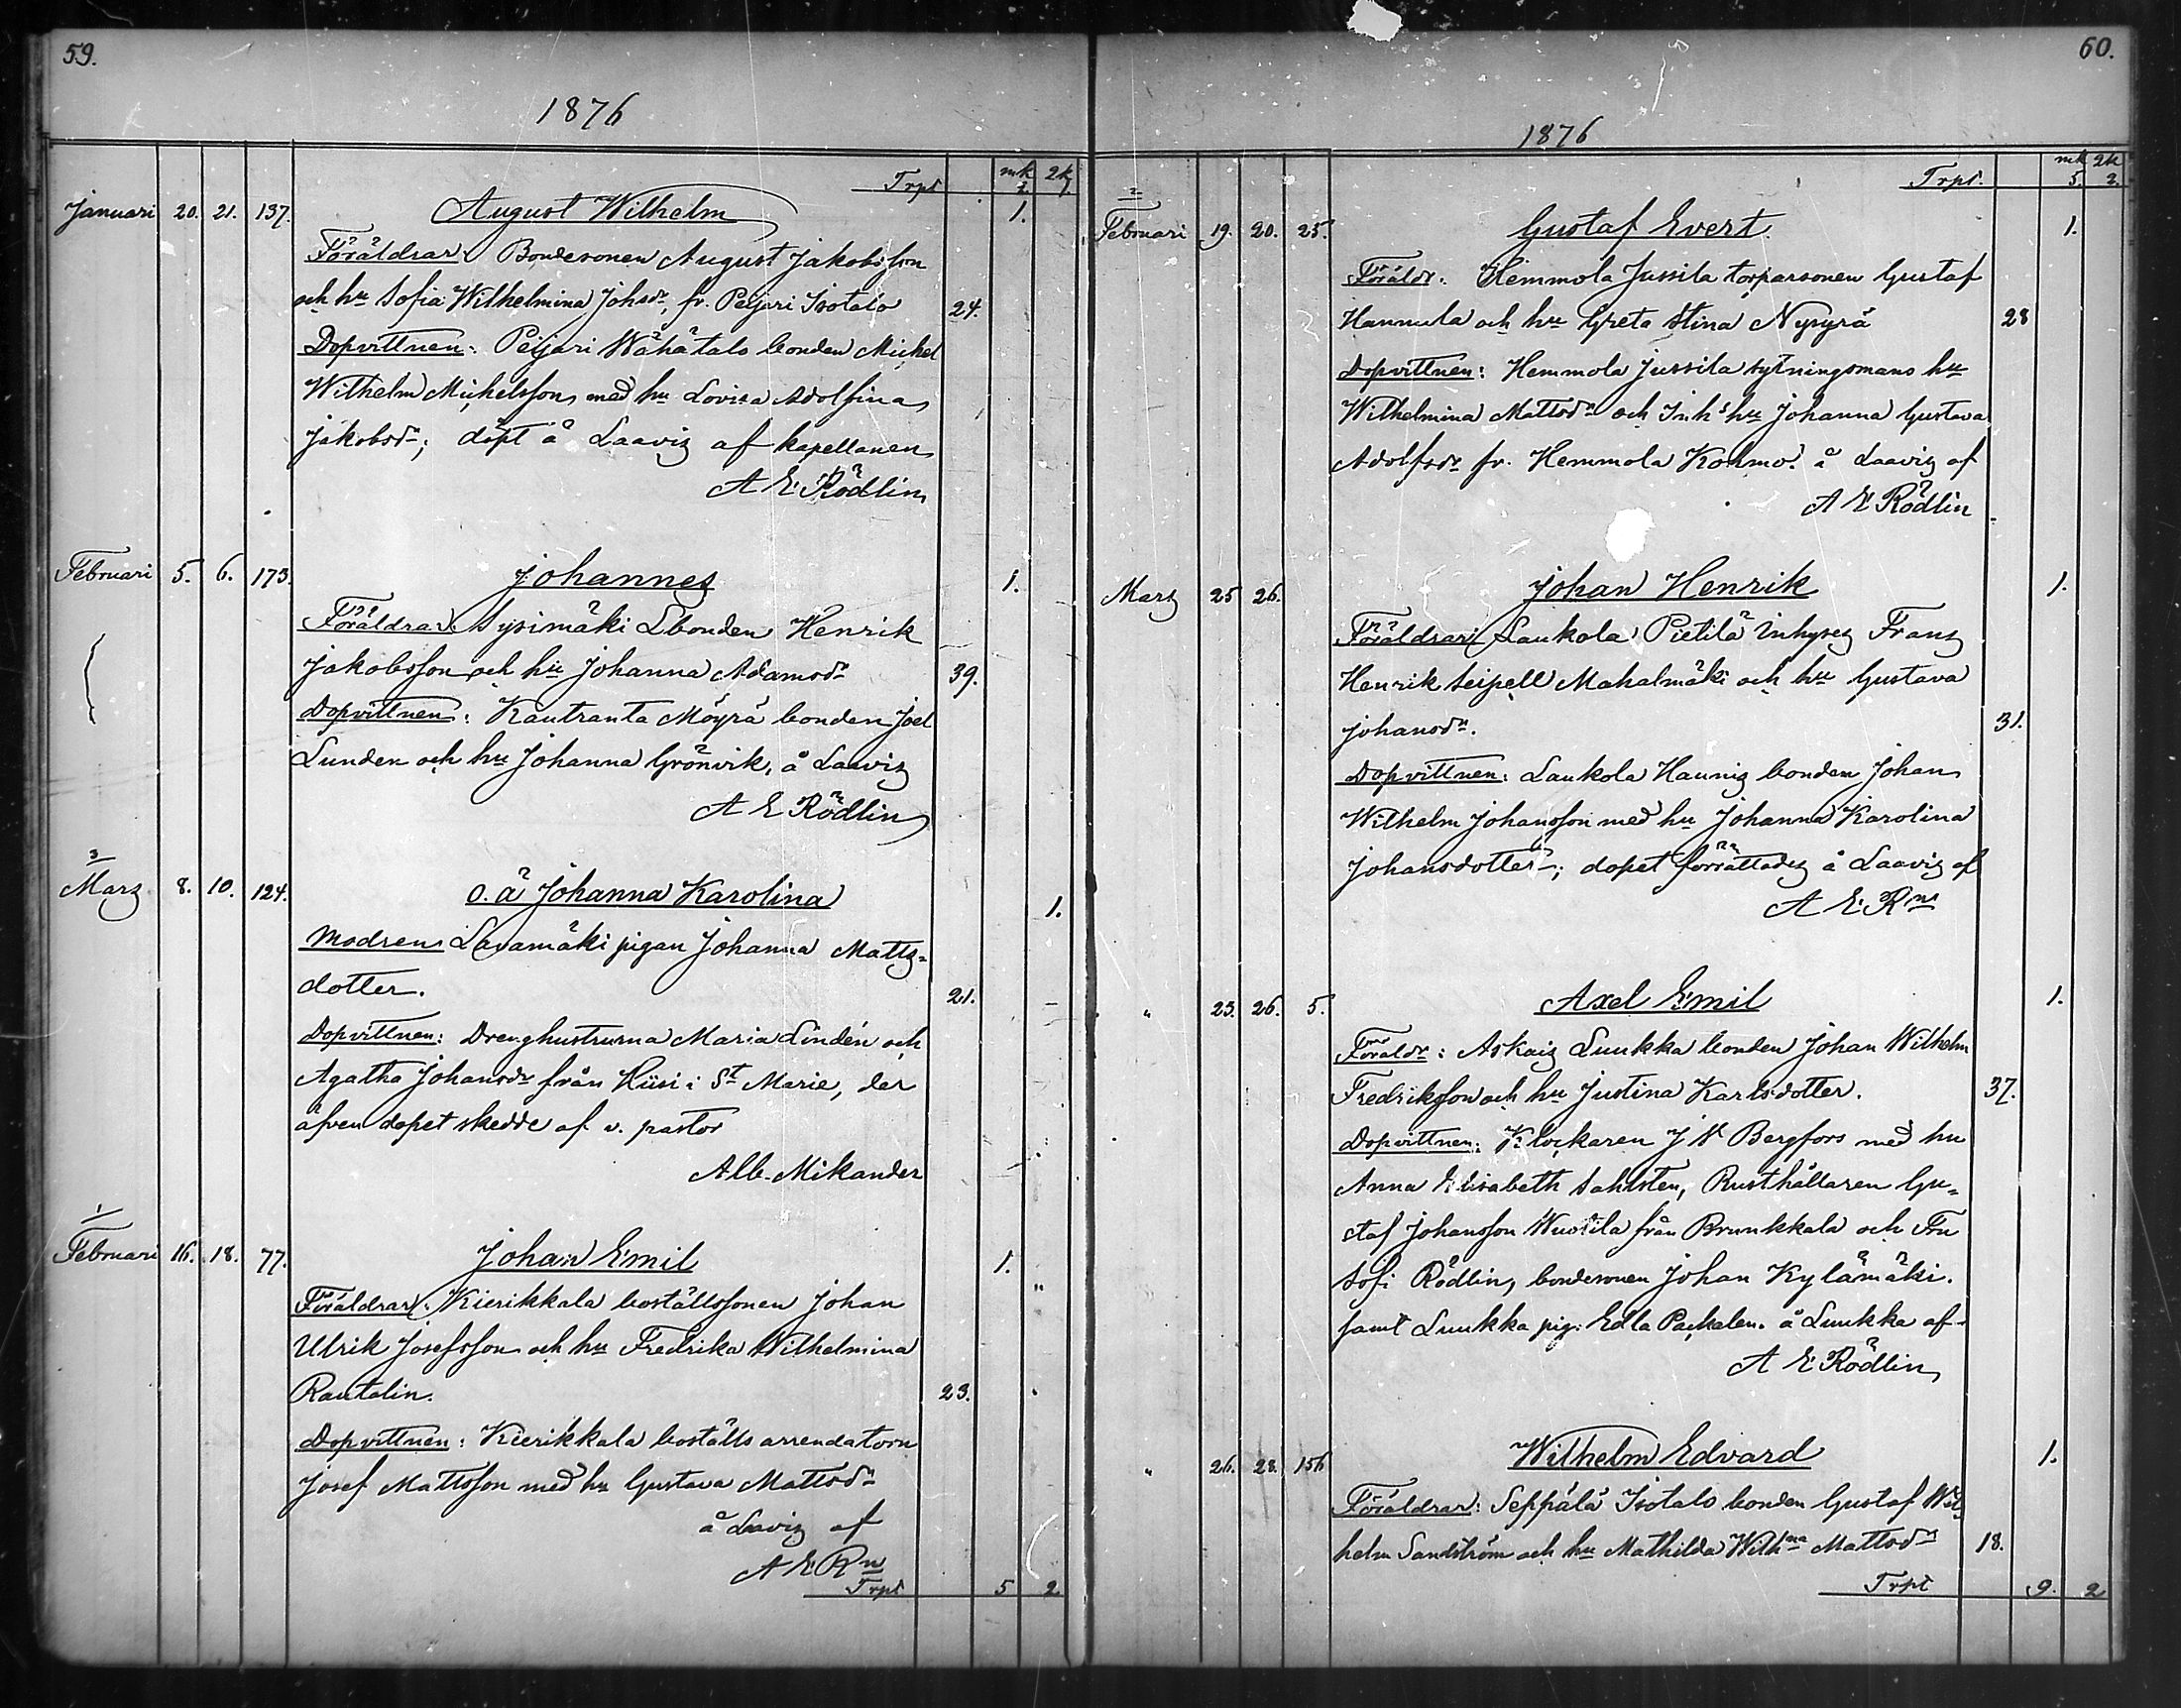 59.
1876
Trpt mk 2k
2. 1.
Januari 20. 21. 137. August Wilhelm 1.
Föräldrar: Bondesonen August Jakobsson
och hu Sofia Wilhelmina Johsdr, fr. Peijari Isotalo 24.
Dopvittnen: Peijari Wähätalo bonden Michel
Wilhelm Michelsson med hu Lovisa Adolfina
Jakobsdr; döpt å Laavis af kapellanen
A E Rödlin
Februari 5. 6. 173. Johannes 1.
Föräldrar: Sysimäki Lbonden Henrik
Jakobsson och hu Johanna Adamsdr 39.
Dopvittnen: Kautranta Möyrä bonden Joel
Lunden och hu Johanna Grönvik, å Laavis
A E Rödlin
3
Mars 8. 10. 124. o.ä Johanna Karolina 1.
Modren: Lavamäki pigan Johanna Matts-
dotter. 21.
Dopvittnen: Drenghustrurna Maria Lindén och
Agatha Johansdr från Hiisi i St Marie, der
äfven dopet skedde af v. pastor
Alb. Mikander
1
Februari 16. 18. 77. Johan Emil 1.
Föräldrar: Kierikkala boställssonen Johan
Ulrik Josefsson och hu Fredrika Wilhelmina
Rautelin. 23.
Dopvittnen: Kierikkala boställs arrendatorn
Josef Mattsson med hu Gustava Mattsdr
å Laavis af
A E Rn
Trpt 5 2.
60.
1876
Trpt. mk 2k
5. 2.
2
Februari 19. 20. 25. Gustaf Evert 1.
Föräldr: Hemmola Jussila torparsonen Gustaf
Hannula och hu Greta Stina Nysyrä 28
Dopvittnen: Hemmola Jussila sytningsmans hu
Wilhelmina Mattsdr och Inhs hu Johanna Gustava
Adolfsdr fr. Hemmola Kohmo. å Laavis af
A E Rödlin
Mars 25 26. Johan Henrik 1.
Föräldrar: Laukola Pietilä Inhyses Frans
Henrik Seipell Mahalmäki och hu Gustava
Johansdr. 31.
Dopvittnen: Laukola Haunis bonden Johan
Wilhelm Johansson med hu Johanna Karolina
Johansdotter; dopet förrättades å Laavis af
A E Rn
" 23. 26. 5. Axel Emil 1.
Föräldr: Askais Luukka bonden Johan Wilhelm
Fredriksson och hu Justina Karlsdotter. 37.
Dopvittnen: Klockaren J N Bergfors med hu
Anna Elisabeth Sahlsten, Rusthållaren Gu-
staf Johansson Wuolila från Brunkkala och Fru
Sofi Rödlin, bondesonen Johan Kylämäki.
samt Luukka pig: Edla Packalen. å Luukka af
A E Rödlin
" 26. 28. 156 Wilhelm Edvard 1.
Föräldrar: Seppälä Isotalo bonden Gustaf Wil-
helm Sandström och hu Mathilda Wilhna Mattsdr 18.
Trpt 9. 2